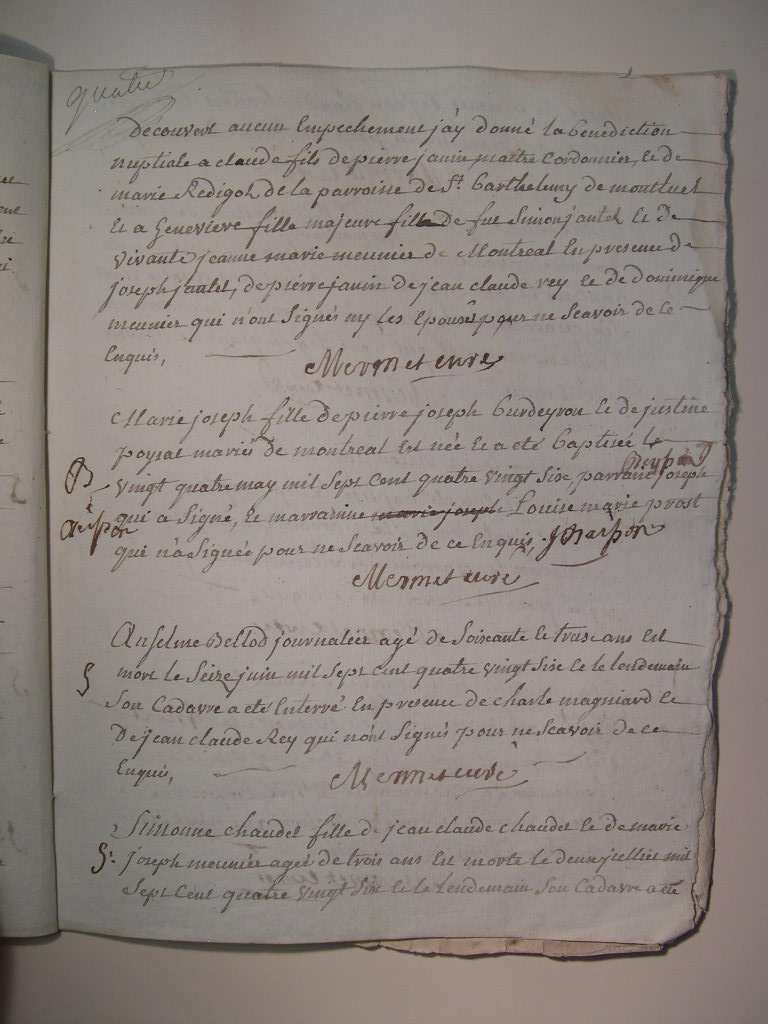 quatre
decouvert aucun Empechement j'ay donné la benediction
nuptiale a claude fils de pierre janin maitre cordonnier, et de
marie Redigoh de la parroisse de St. barthelemy de montluel
et a Genevieve fille majeure fille de fut Simon jantet et de
vivante jeanne marie meunier de Montreal En presence de
joseph jantet, de pierre janin de jean claude rey et de dominique
meunier qui n'ont Signés ny les Epousés pour ne Scavoir de ce
Enquis,
Mermet curé
Marie joseph fille de pierre joseph burdeyron et de justine
poysat mariés de montreal Est née et a eté baptisée le
vingt quatre may mil sept cent quatre vingt Six, parrain joseph
qui a Signé, et marraine marie joseph Louise marie prost
qui n'a Signée pour ne Scavoir de ce Enquis, J harpon
Mermet curé
B
S
Anselme Bellod journalier agé de Soixante et trois ans Est
mort le Seize juin mil sept cent quatre vingt Six et le lendemain
Son Cadavre a eté Enterré En presence de charle magniard et
De jean claude Rey qui n'ont Signés pour ne Scavoir de ce
Enquis,
Mermet curé
S.
Simonne chaudet fille de jean claude chaudet et de marie
joseph meunier ageé de trois ans Est morte le deux juillet mil
Sept Cent quatre vingt Six et le lendemain Son Cadavre a eté